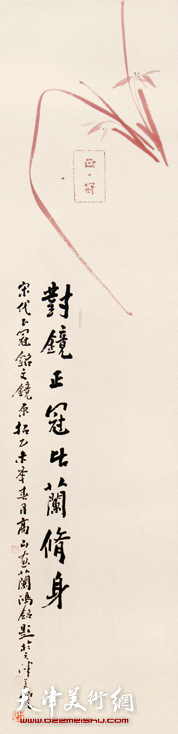 正·冠
對鏡正冠比蘭脩身
宋代正冠銘文鏡原拓乙未年春月高山畫蘭鴻銘題於津
天津美術網
www.022meishu.com